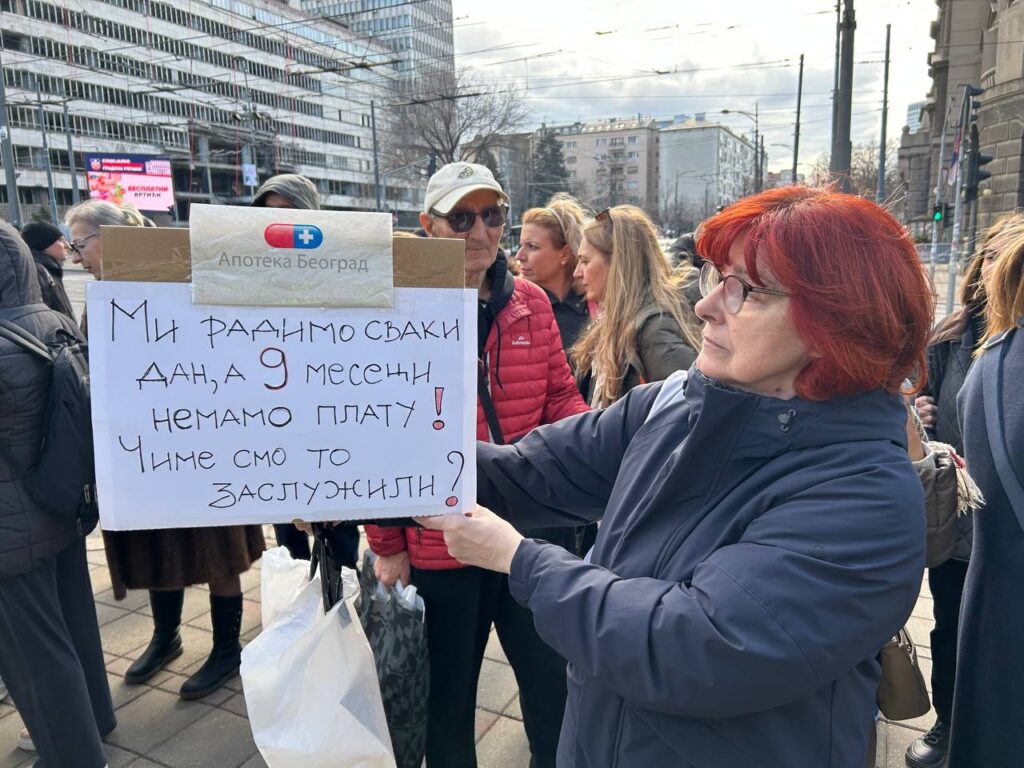 Апотека Београд
Ми радимо сваки
дан, а 9 месеци
немамо плату!
Чиме смо то
заслужили?
БЕСПЛАТНИ